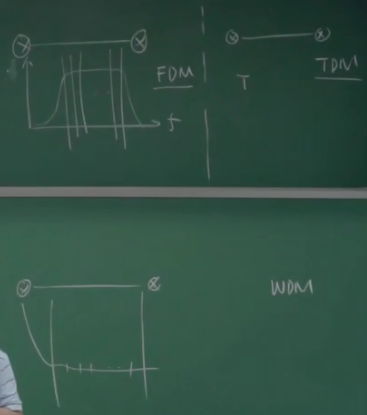 FDM
f
TDM
T
WDM